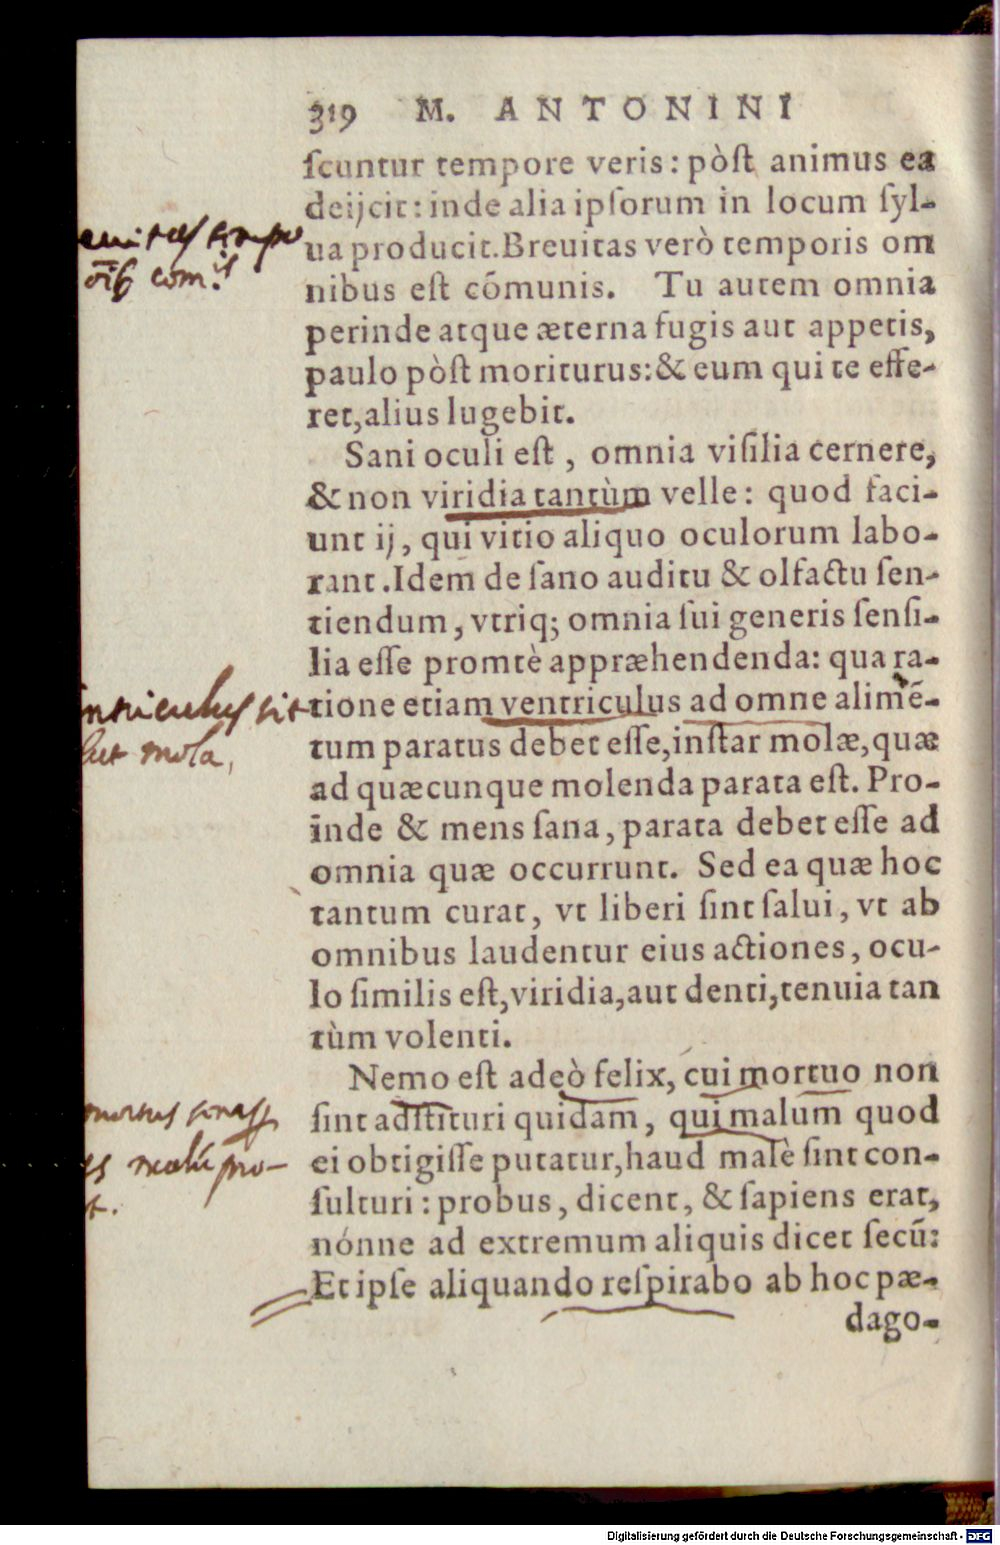 319 M. ANTONINI
ſcuntur tempore veris: pòſt animus ea
deijcit: inde alia ipſorum in locum ſyl-
ua producit. Breuitas verò temporis om
nibus eſt cōmunis. Tu autem omnia
perinde atque æterna fugis aut appetis,
paulo pòſt moriturus: & eum qui te effe-
ret, alius lugebit.
Sani oculi eſt, omnia viſilia cernere,
& non viridia tantùm velle: quod faci-
unt ij, qui vitio aliquo oculorum labo-
rant. Idem de ſano auditu & olfactu ſen-
tiendum, vtriq; omnia ſui generis ſenſi-
lia eſſe promtè appræhendenda: qua ra-
tione etiam ventriculus ad omne alimē-
tum paratus debet eſſe, inſtar molæ, quæ
ad quæcunque molenda parata eſt. Pro-
inde & mens ſana, parata debet eſſe ad
omnia quæ occurrunt. Sed ea quæ hoc
tantum curat, vt liberi ſint ſalui, vt ab
omnibus laudentur eius actiones, ocu-
lo ſimilis eſt, viridia, aut denti, tenuia tan
tùm volenti.
Nemo eſt adeò felix, cui mortuo non
ſint adſtituri quidam, qui malum quod
ei obtigiſſe putatur, haud malè ſint con-
ſulturi: probus, dicent, & ſapiens erat,
nónne ad extremum aliquis dicet ſecū:
Et ipſe aliquando reſpirabo ab hoc pæ-
dago-
ntriculus sit
mola,
malū pro-
Digitalisierung gefördert durch die Deutsche Forschungsgemeinschaft - DFG